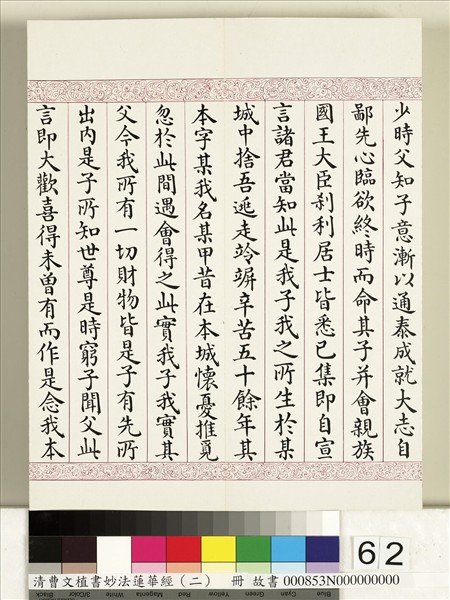 少時父知子意漸以通泰成就大志自
鄙先心臨欲終時而命其子并會親族
國王大臣刹利居士皆悉已集即自宣
言諸君當知此是我子我之所生於某
城中捨吾逃走竛竮辛苦五十餘年其
本字某我名某甲昔在本城懷憂推覓
忽於此間遇會得之此實我子我實其
父今我所有一切財物皆是子有先所
出內是子所知世尊是時窮子聞父此
言即大歡喜得未曾有而作是念我本
62
Blue Cyan Green Yellow Red Magenta White 3/Color Black
清曹文植書妙法蓮華經（二） 冊 故書 000853N000000000